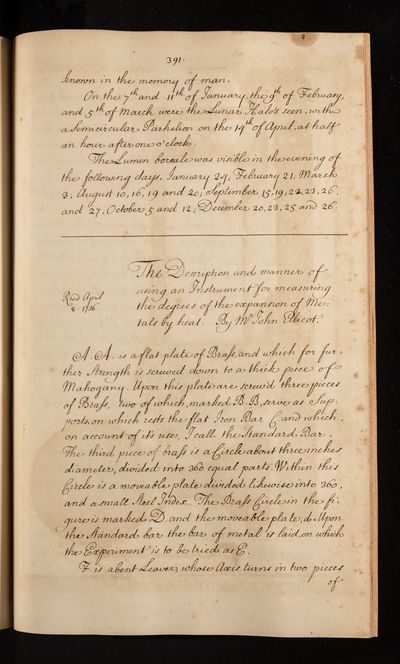 391.
known in the memory of man.
On the 7th and 11th of January, the 9th of February,
and 5th of March were the Lunar Halo's seen, with
a Semicircular Parhelion on the 14th of April, at half
an hour after one o'clock.
The Lumen boreale was visible in the evening of
the following days, January 24; February 21; March
3; August 10, 16, 19 and 20; September 15, 19, 22, 23, 26,
and 27; October 5 and 12; December 20, 23, 25 and 26.
The Description and manner of
using an Instrument for measuring
Read April
8. 1736
the degrees of the expansion of Me-
tals by heat. By Mr John Ellicot.
A. A. is a flat plate of Brass, and which for fur-
ther strength is screwed down to a thick piece of
Mahogany. Upon this plate are screw'd three pieces
of Brass, two of which, marked B. B, serve as Sup
ports, on which rests the flat Iron Bar C and which,
on account of its use, I call the Standard Bar.
The third piece of brass is a Circle about three inches
diameter, divided into 360 equal parts. Within this
Circle is a moveable plate divided likewise into 360,
and a small Steel Index. The Brass Circle in the fi-
gure is marked D. and the moveable plate, d. Upon
the Standard bar the bar of metal is laid, on which
the Experiment is to be tried as E.
F. is a bent Leaver, whose Axis turns in two pieces
of